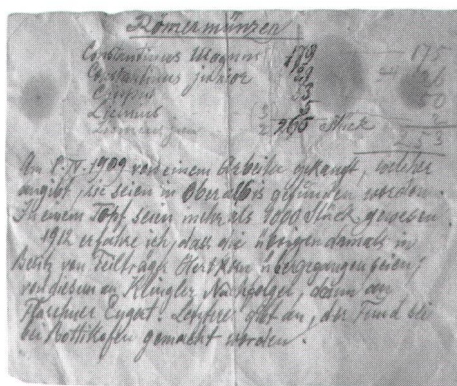 Römermünzen
Constantinus Magnus 178 — 175
Constantinus junior 21 26
Crispus 53 50
Licinius 3
Licinius jun 2 265 Stück 253
Am 8. IV. 1909 von einem Arbeiter gekauft, welcher
angibt, sie seien in Oberalbis gefunden worden.
In einem Topf seien mehr als 1000 Stück gewesen.
1912 erfahre ich, dass die übrigen damals in
Besitz von Teilträger Hert übergegangen seien,
von diesem an Klingler Nachfolger, dann an
Flaschner Engert. gibt an, der Fund sei
bei Bottikofen gemacht worden.